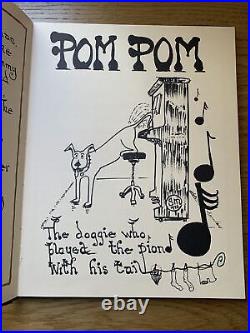 POM POM
The doggie who
played the piano
with his tail